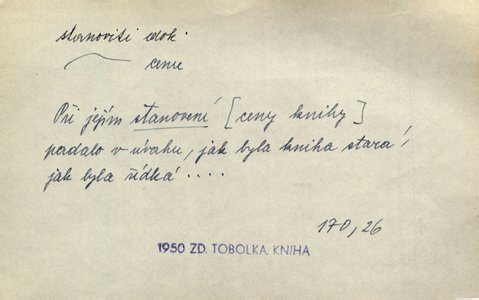 stanoviti dok.
cenu
Při jejím stanovení [ceny knihy]
padalo v úvahu, jak byla kniha stará,
jak byla řídká ....
170, 26
1950 ZD. TOBOLKA, KNIHA